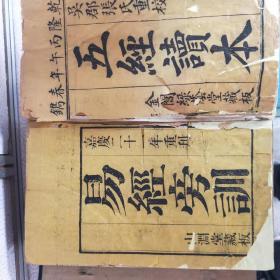 乾隆丙午年春鐫
吳郡張氏重校
五經讀本
金閶綠蔭堂藏板
嘉慶二十一年重刊
易經旁訓
山淵堂藏板